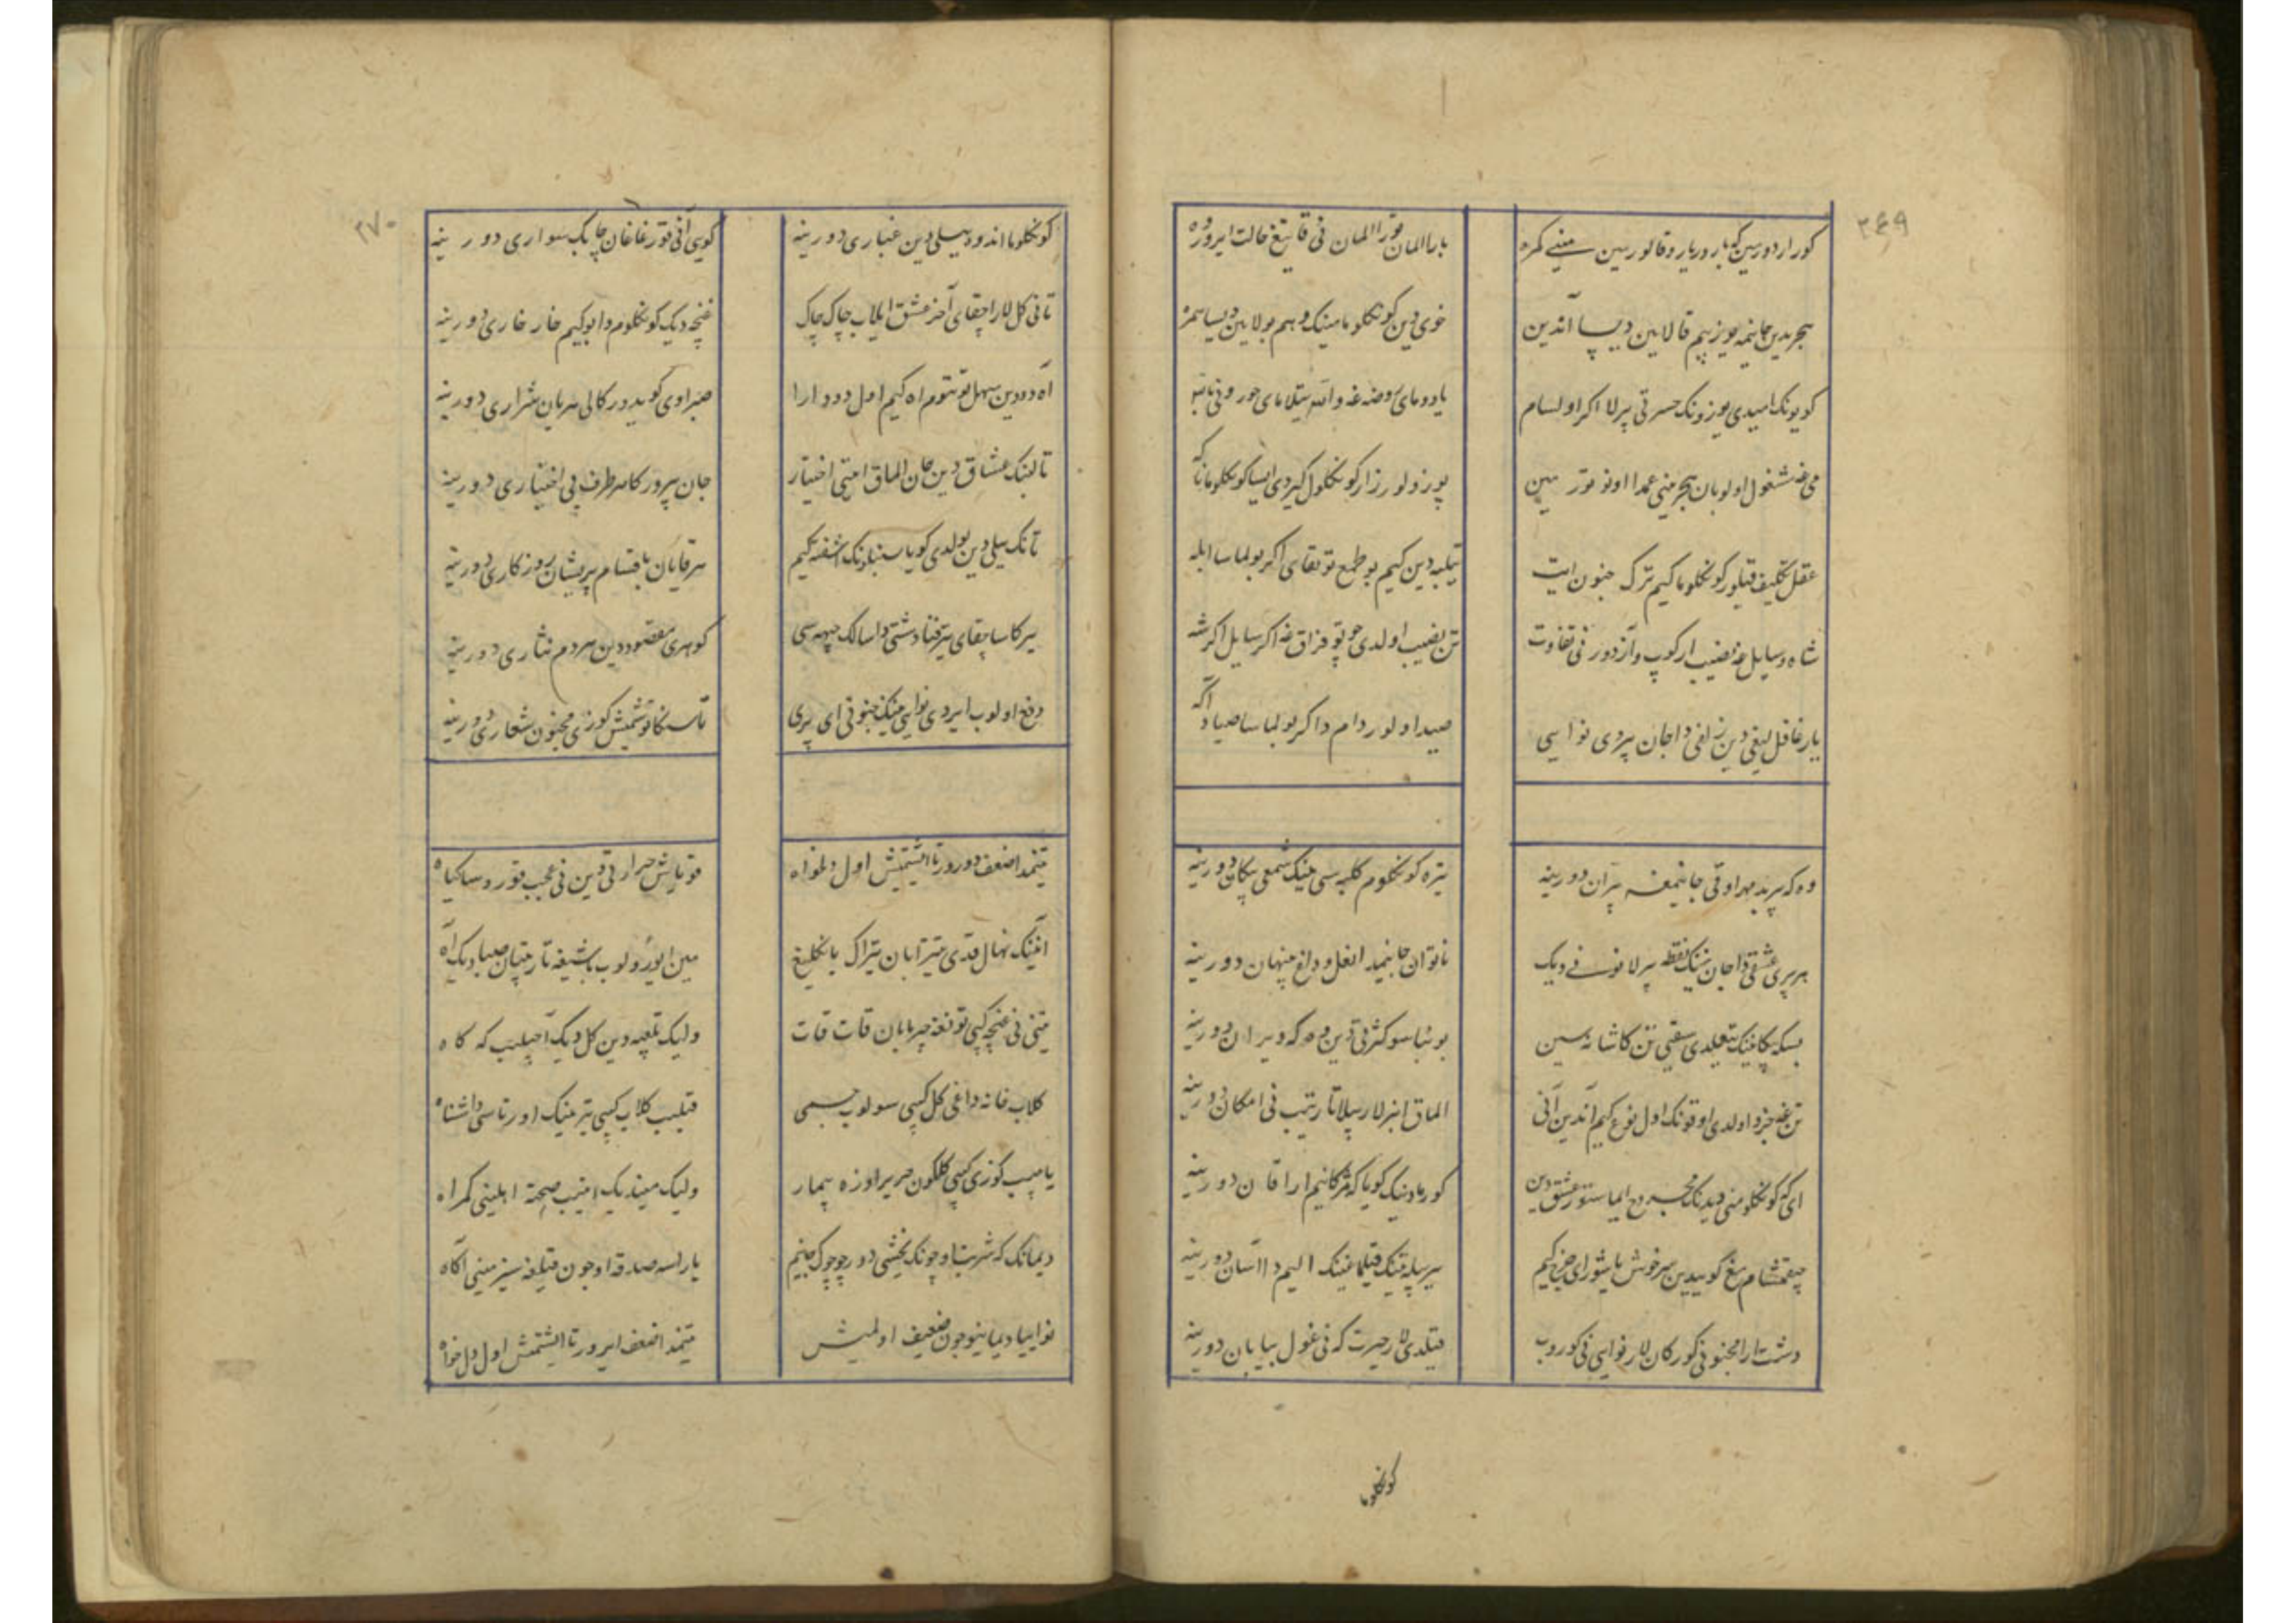 ٢٦٩
کورار دورمین که بارور یار و قالورمین
بارا المان تورا المان نی قاتیغ حالت ایرور
هجریدین جانیمه یوز بیم قالابین دیسا آندین
خوی دین کونکلوما مینک وهم بولابین دیسا
کویونک امیدی یوزونک حسرتی بیرلا اکر اولسام
می غه مشغول اولوبان هجر منی عمدا اونوتور مین
عقل تکلیف قیلور کونکلوما کیم ترک جنون ایت
تیلبه دین کیم بو طمع توتقای اکر بولماسا ابله
شاه و سایل غه نصیب ار کوپ و آز دور نی تفاوت
تن نصیب اولدی چو توفراق غه اکر سایل اکر شه
یار غافل لیغی دین زلفی دا جان بیردی نوایی
صید اولور دام دا اکر بولماسا صیاد آکه
وه که بیر بدمهر اوقی جانیمغه پران دور ینه
تیره کونکلوم کلبه سی نینک شمعی پیکان دور ینه
هر پری عشقی دا جان نینک نقطه بیرلا نونی دیک
ناتوان جانیمدا نعل و داغ پنهان دور ینه
بسکه پیکانینک یغیلدی سقفی تن کاشانه سین
بو بنا سو کثرتی دین وه که ویران دور ینه
تن غه جزو اولدی اوقونک اول نوع کیم آندین آنی
الماق ایزلار بیلا تارتیب نی امکان دور ینه
ای که کونکلومنی دیدینک مجروح ایماستور عشق دین
کورمادینک کویا که مژکانیم ارا قان دور ینه
چیقمشام مغ کوییدین سرخوش یاشور ای چرخ کیم
بیر پیله تینک قیلماغینک الیمدا آسان دور ینه
دشت ارا مجنونی کورکان لار نوایی نی کوروب
قیلدی لار حیرت که نی غول بیابان دور ینه
کونکلوما
٢٧٠
کونکلوما اندوه سیلی دین غباری دور ینه
کویی آنی قوزغاغان چابک سواری دور ینه
تانی کل لار اچقای آخر عشق ایلاب چاک چاک
غنچه دیک کونکلوم دا بو کیم خار خاری دور ینه
آه دودین سهل توتتوم اه کیم اول دود ارا
صبر اوی کویدورکالی هر یان شراری دور ینه
تا لبنک عشاق دین جان الماق ایتی اختیار
جان بیرورکا هر طرف بی اختیاری دور ینه
تانک ییلی دین بولدی کویا سنبلونک آشفته کیم
هر قایان باقسام پریشان روزکاری دور ینه
یرکا ساچقای تیر فنا دشتی دا سالک چهره سی
کوهری مقصود دین هر دم نثاری دور ینه
دفع اولوب ایردی نوایی نینک جنونی ای پری
تاسنکا توشمیش کوزی مجنون شعاری دور ینه
تنیمدا ضعف دورور تا ایشتمیش اول دلخواه
قویاش حرارتی دین نی عجب قوروسا کیاه
انینک نهال قدی تیترابان تیراک یانکلیغ
مین ایورولوب باشیغه تارتیبان صبا دیک آه
تنی نی غنچه کیبی تونغه چیرمابان قات قات
ولیک تلبه دین کل دیک آچیلیب که کاه
کلاب خانه داغی کل کیبی سولوب جسمی
قیلیب کلاب کیبی تیر نینک اورتاسی دا شناه
یاپیب کوزی کیبی کلکون حریر اوزه بیمار
ولیک مین دیک ایتیب صحت اهلینی کمراه
دیمانک که شربت اوچونک یخشی دور چوچوک جانیم
یاراسه صدقه اوچون قیلغه سیز مینی آکاه
نوایی یا دیما نیچون ضعیف اولمیش
تنیمدا ضعف ایرور تا ایشتمش اول دل خواه